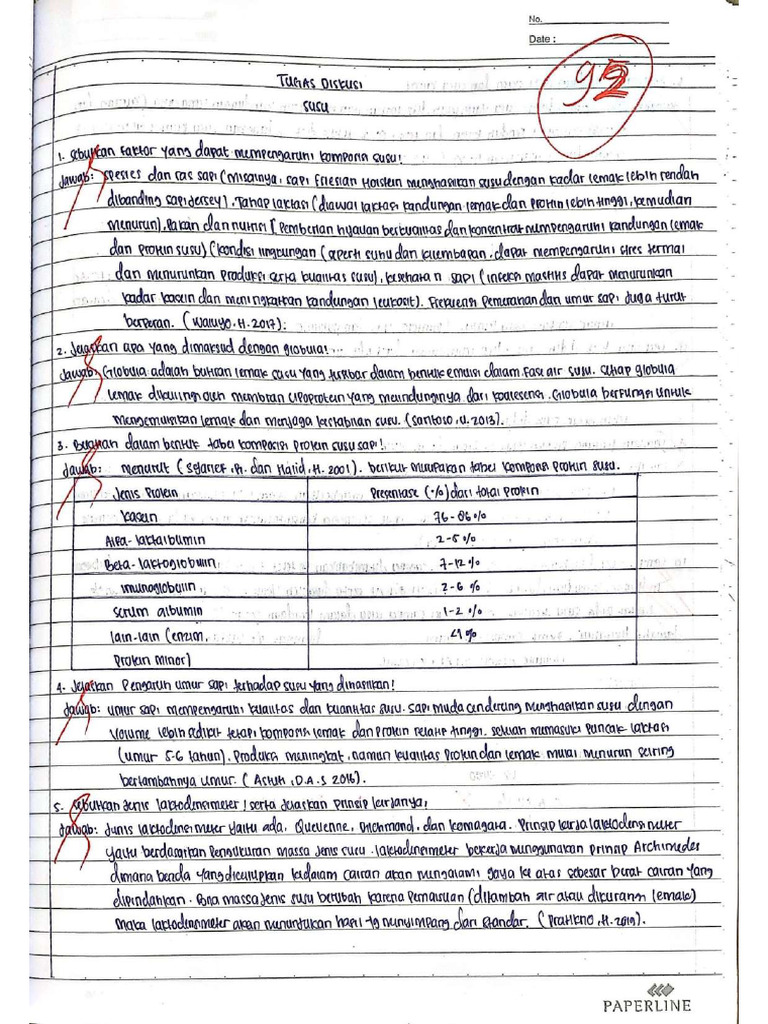 No.
Date :
92
TUGAS DISKUSI
SUSU
1. Sebutkan faktor yang dapat mempengaruhi komposisi susu!
Jawab: Spesies dan ras sapi (misalnya, sapi Friesian Holstein menghasilkan susu dengan kadar lemak lebih rendah
dibanding sapi Jersey). Tahap laktasi (diawal laktasi kandungan lemak dan protein lebih tinggi, kemudian
menurun). Pakan dan nutrisi (Pemberian hijauan berkualitas dan konsentrat mempengaruhi kandungan lemak
dan protein susu) (kondisi lingkungan (seperti suhu dan kelembapan. dapat mempengaruhi stres termal
dan menurunkan produksi serta kualitas susu), kesehatan sapi (infeksi mastitis dapat menurunkan
kadar kasein dan meningkatkan kandungan leukosit). Frekuensi pemerahan dan umur sapi juga turut
berperan. (Waluyo, H. 2017).
2. Jelaskan apa yang dimaksud dengan globula!
Jawab: Globula adalah butiran lemak susu yang tersebar dalam bentuk emulsi dalam fase air susu. Setiap globula
lemak dikelilingi oleh membran lipoprotein yang melindunginya dari koalesensi. Globula berfungsi untuk
mengemulsikan lemak dan menjaga kestabilan susu. (Santoso, U. 2013).
3. Buatkan dalam bentuk tabel komposisi protein susu sapi!
Jawab: Menurut ( dan Halid, H. 2001). berikut merupakan tabel komposisi protein susu.
Jenis Protein Presentase (%) dari total protein
Kasein 76-86%
Alfa-laktalbumin 2-5%
Beta-laktoglobulin 7-12%
imunoglobulin 2-6%
serum albumin 1-2%
lain-lain (enzim, <1%
Protein minor)
4. Jelaskan Pengaruh umur sapi terhadap susu yang dihasilkan!
Jawab: umur sapi mempengaruhi kualitas dan kuantitas susu. sapi muda cenderung menghasilkan susu dengan
volume lebih sedikit tetapi komposisi lemak dan protein relatif tinggi. setelah memasuki puncak laktasi
(umur 5-6 tahun). Produksi meningkat, namun kualitas protein dan lemak mulai menurun seiring
bertambahnya umur. (Astuti, D.A.S 2016).
5. Sebutkan jenis laktodensimeter! serta jelaskan prinsip kerjanya!
Jawab: Jenis laktodensimeter yaitu ada, Quevenne, Richmond, dan Komagara. Prinsip kerja laktodensimeter
yaitu berdasarkan pengukuran massa jenis susu. laktodensimeter bekerja menggunakan prinsip Archimedes
dimana benda yang dicelupkan kedalam cairan akan mengalami gaya ke atas sebesar berat cairan yang
dipindahkan. Bila massa jenis susu berubah karena pemalsuan (ditambah air atau dikurangi lemak)
maka laktodensimeter akan menunjukan hasil yg menyimpang dari standar. (Pratikno, H. 2019).
PAPERLINE